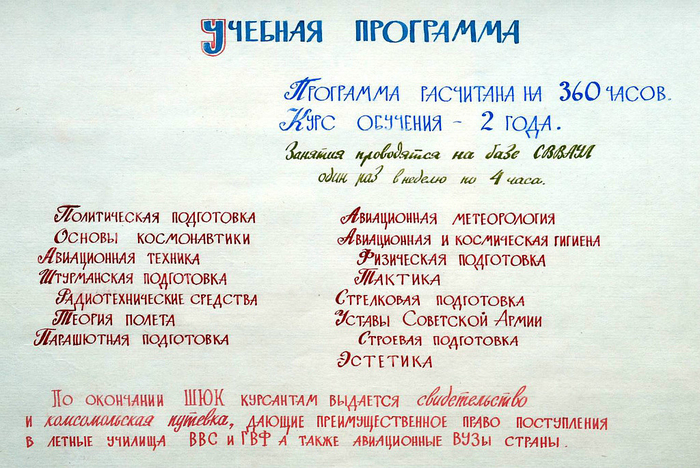 Учебная программа
Программа расчитана на 360 часов.
Курс обучения - 2 года.
Занятия проводятся на базе СВВАУЛ
один раз в неделю по 4 часа.
Политическая подготовка
Основы космонавтики
Авиационная техника
Штурманская подготовка
Радиотехнические средства
Теория полета
Парашютная подготовка
Авиационная метеорология
Авиационная и космическая гигиена
Физическая подготовка
Тактика
Стрелковая подготовка
Уставы Советской Армии
Строевая подготовка
Эстетика
По окончании ШЮК курсантам выдается свидетельство
и комсомольская путевка, дающие преимущественное право поступления
в летные училища ВВС и ГВФ а также авиационные ВУЗы страны.